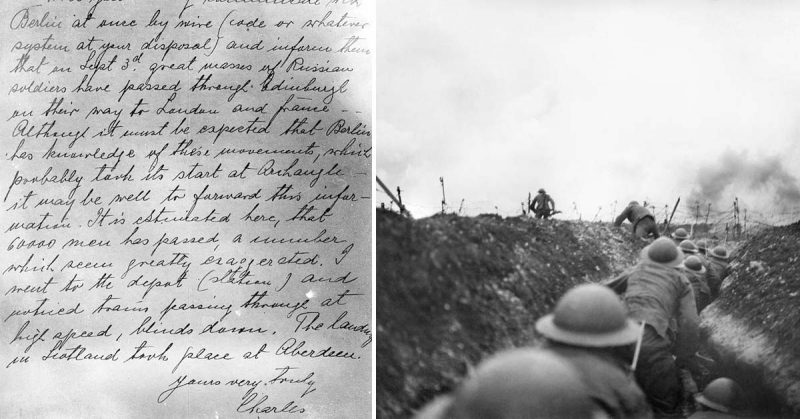 communicate with
Berlin at once by wire (code or whatever
system at your disposal) and inform them
that on Sept 3d. great masses of Russian
soldiers have passed through Edinburgh
on their way to London and france --
Although it must be expected that Berlin
has knowledge of these movements, which
probably took its start at Archangle -
it may be well to forward this infor-
mation. It is estimated here, that
60000 men has passed, a number
which seem greatly exagerated. I
went to the depot (station) and
noticed trains passing through at
high speed, blinds down. The landing
in Scotland took place at Aberdeen.
Yours very truly
Charles